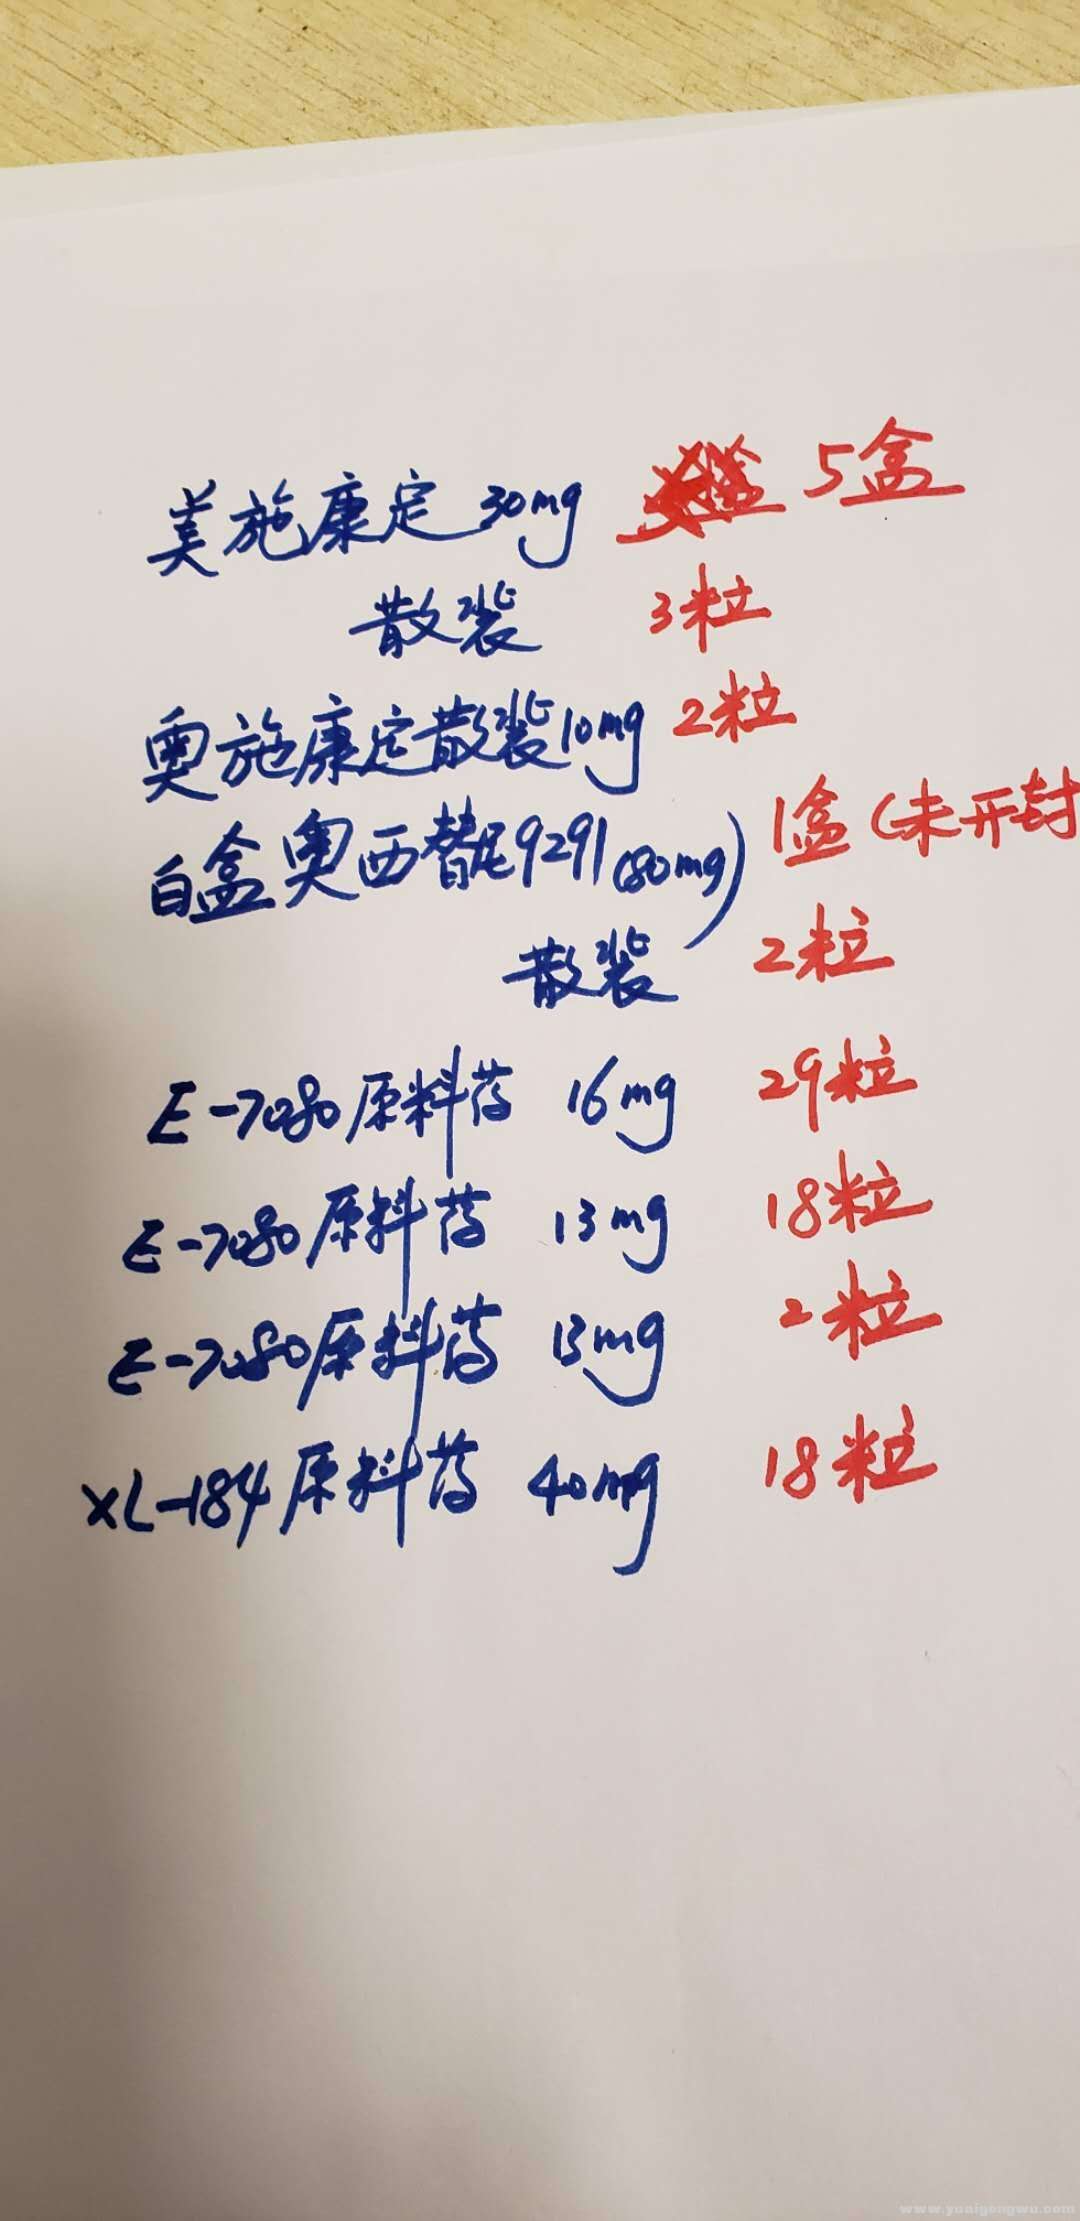 美施康定30mg 5盒
散装 3粒
奥施康定散装10mg 2粒
白盒奥西替尼9291(80mg) 1盒(未开封
散装 2粒
E-7080原料药 16mg 29粒
E-7080原料药 13mg 18粒
E-7080原料药 13mg 2粒
XL-184原料药 40mg 18粒
www.yuaigongwu.com